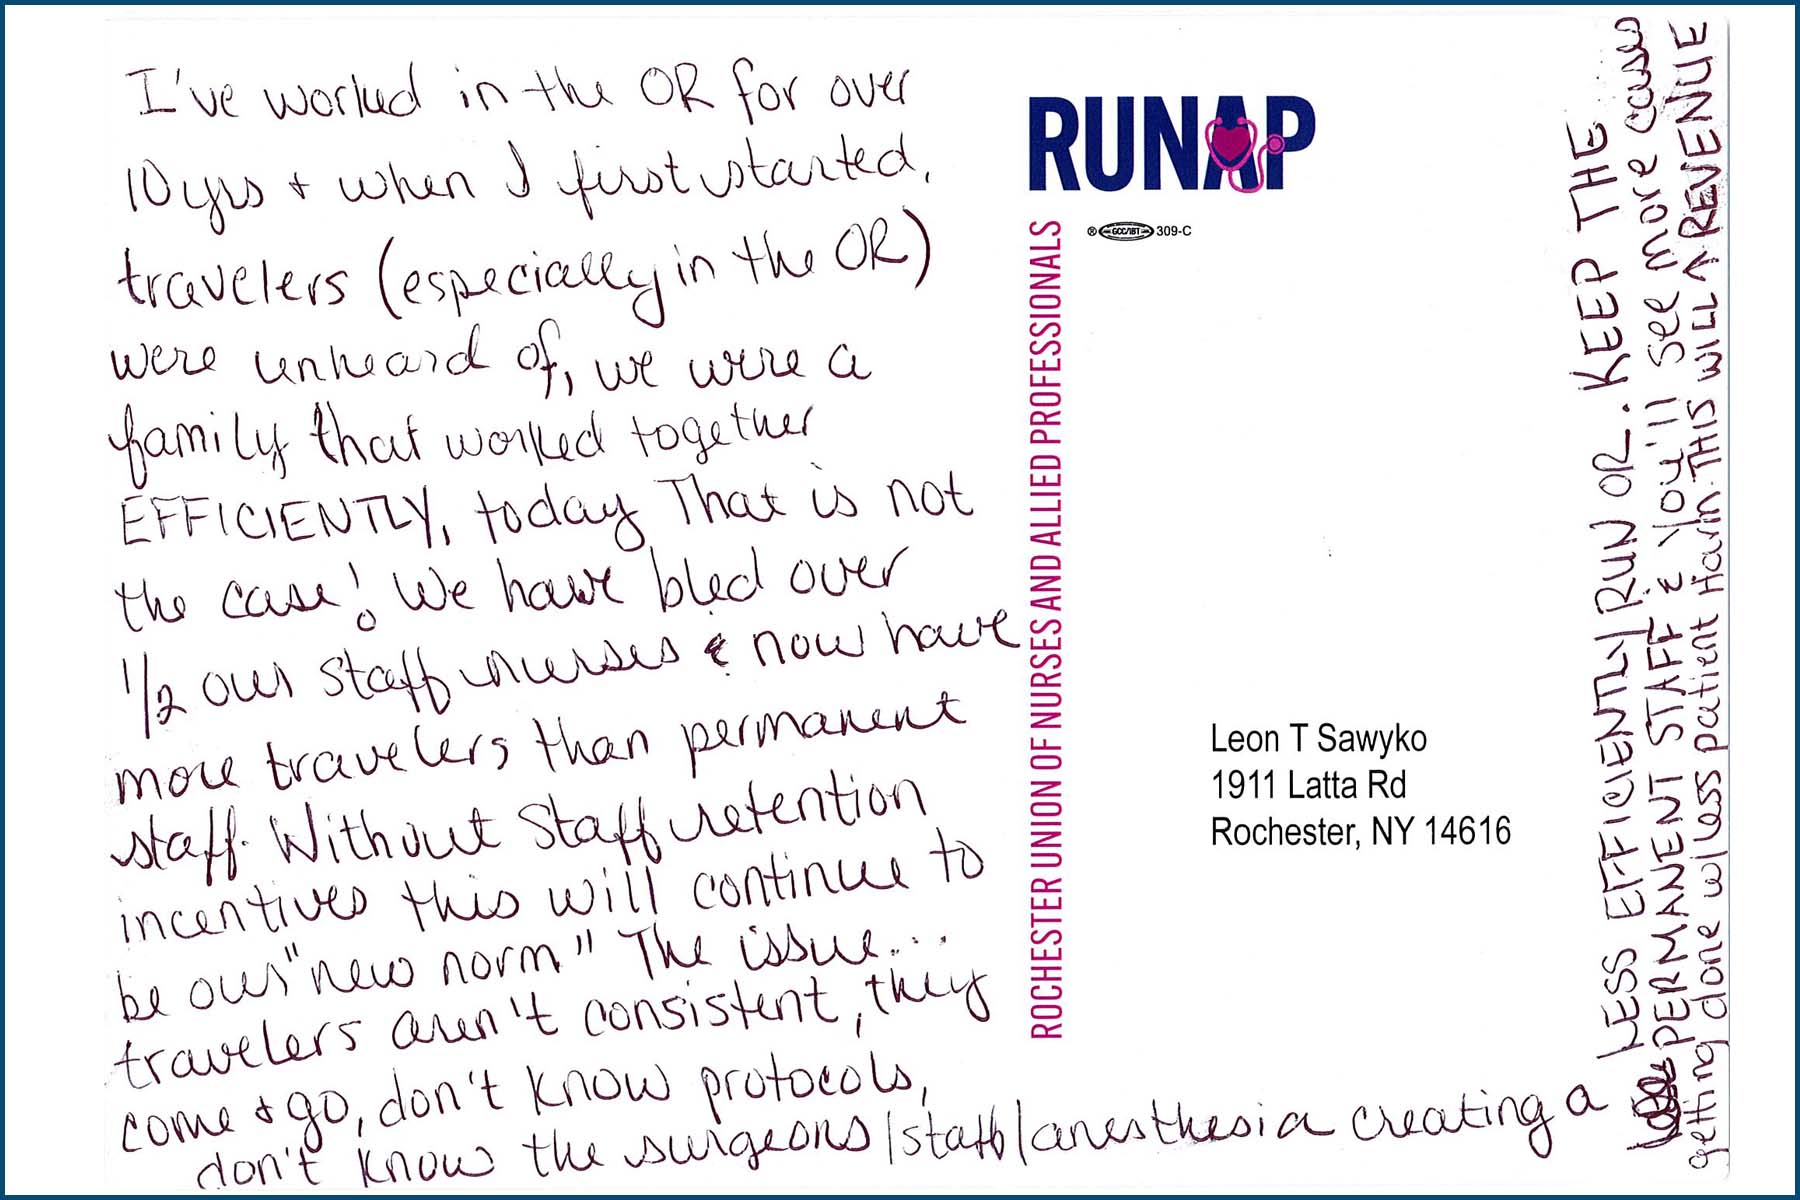 I've worked in the OR for over
10yrs + when I first started,
travelers (especially in the OR)
were unheard of, we were a
family that worked together
EFFICIENTLY, today That is not
the case! We have bled over
1/2 our staff nurses & now have
more travelers than permanent
staff. Without Staff retention
incentives this will continue to
be our "new norm" The issue...
travelers aren't consistent, they
come + go, don't know protocols,
don't know the surgeons/staff/anesthesia creating a
LESS EFFICIENTLY RUN OR. KEEP THE
PERMANENT STAFF & You'll see more cases
getting done w/less patient Harm. THIS WILL ↑ REVENUE
RUNAP
® GCC/IBT 309-C
ROCHESTER UNION OF NURSES AND ALLIED PROFESSIONALS
Leon T Sawyko
1911 Latta Rd
Rochester, NY 14616